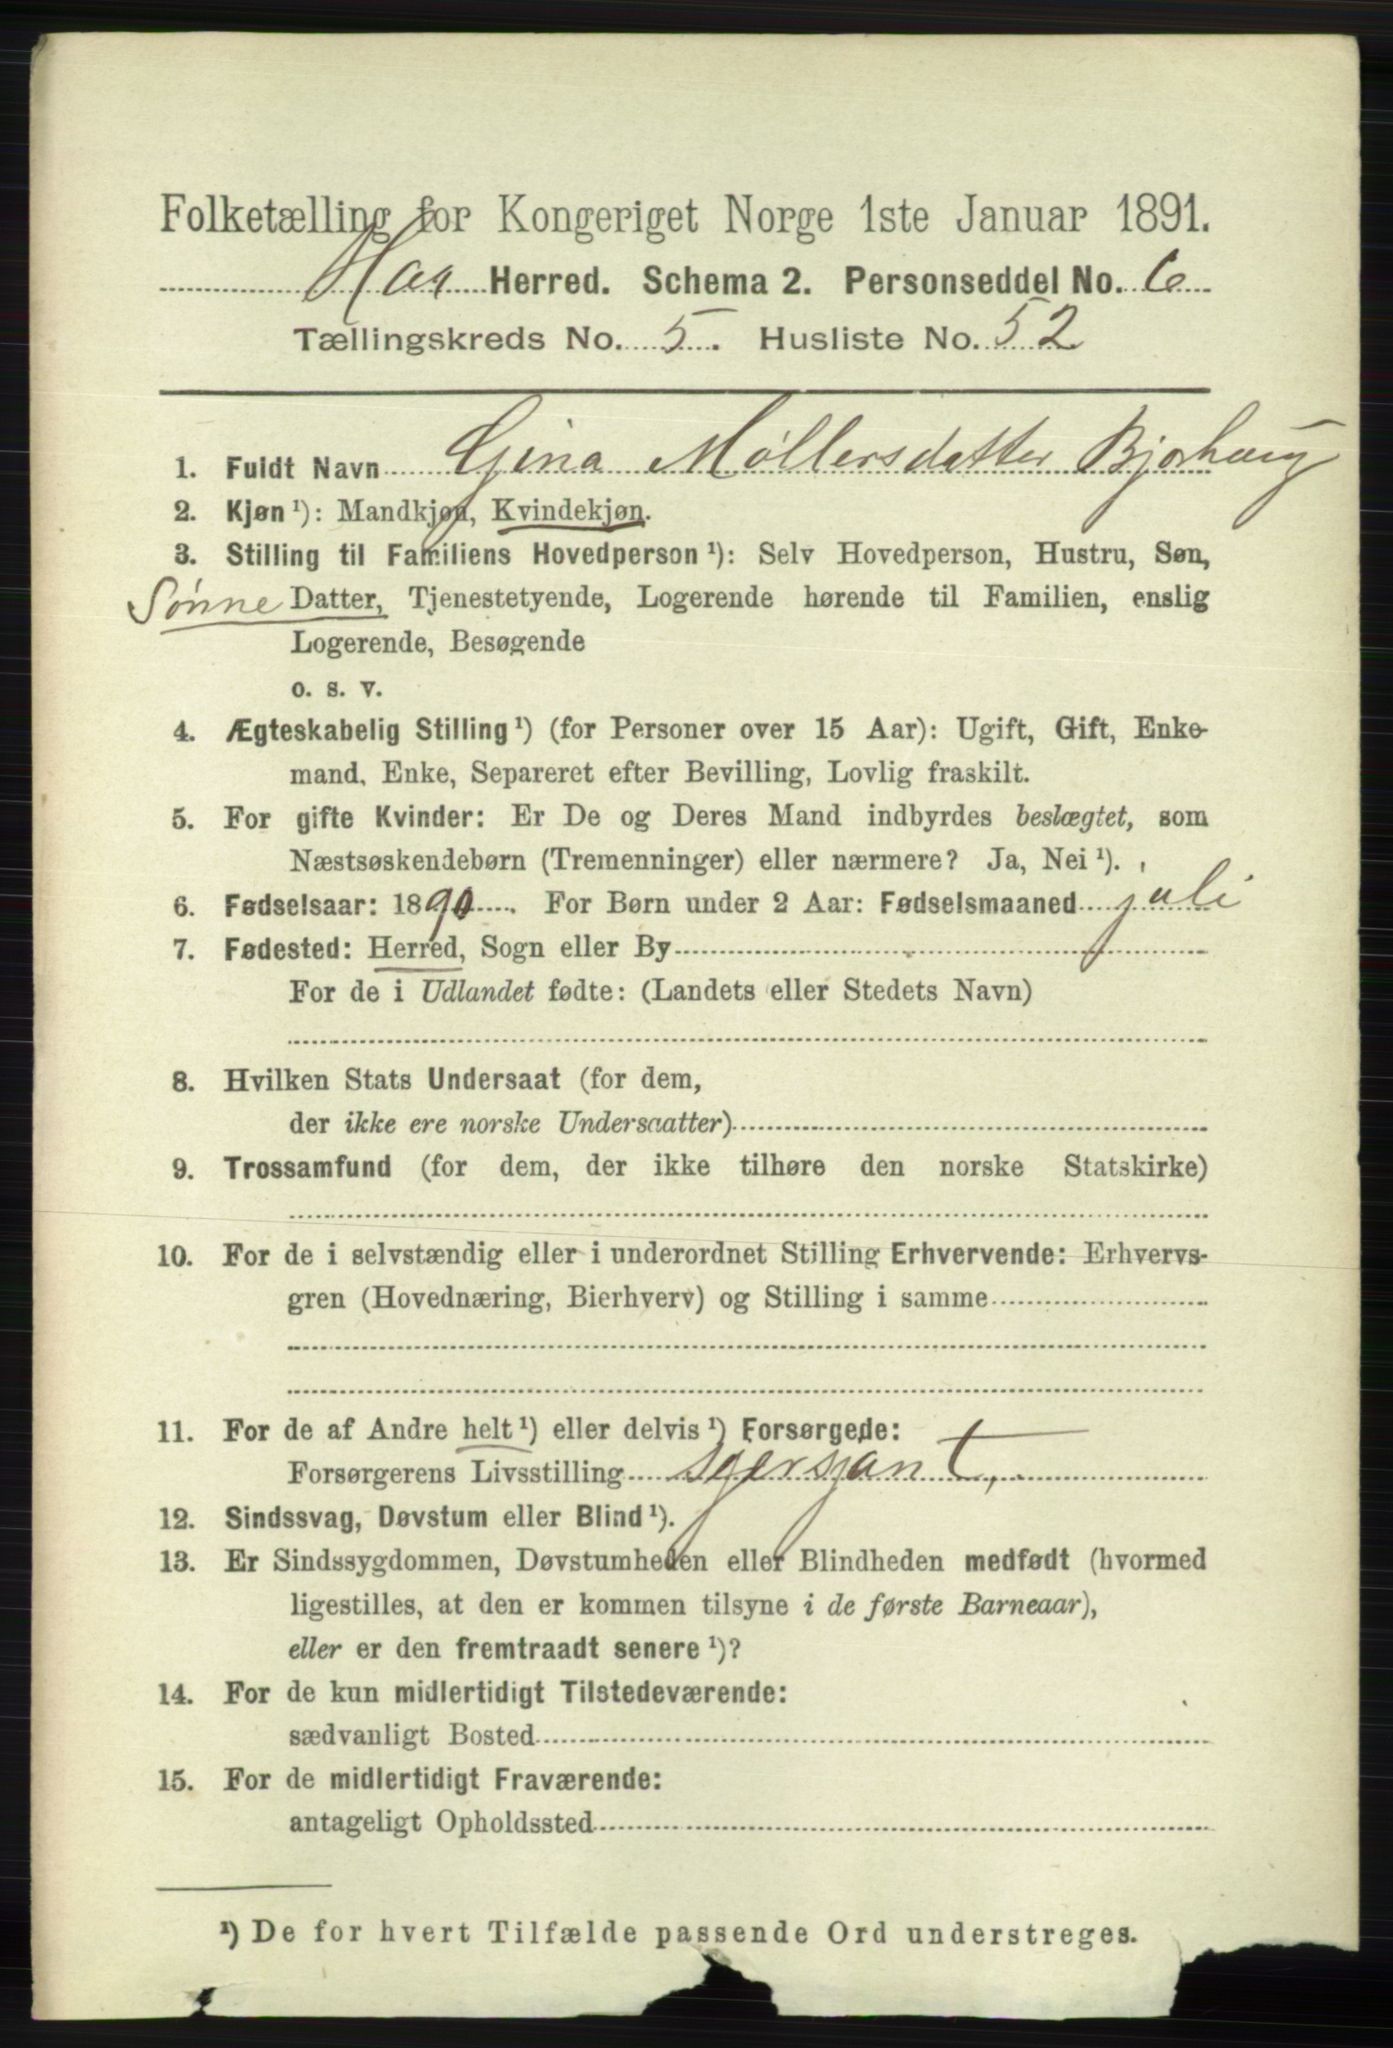 Folketælling for Kongeriget Norge 1ste Januar 1891.
Haa Herred. Schema 2. Personseddel No. 6
Tællingskreds No. 5. Husliste No. 52
1. Fuldt Navn Gina Møllersdatter Bjorhaug
2. Kjøn¹): Mandkjøn, Kvindekjøn.
3. Stilling til Familiens Hovedperson¹): Selv Hovedperson, Hustru, Søn,
Sønne Datter, Tjenestetyende, Logerende hørende til Familien, enslig
Logerende, Besøgende
o. s. v.
4. Ægteskabelig Stilling¹) (for Personer over 15 Aar): Ugift, Gift, Enke-
mand, Enke, Separeret efter Bevilling, Lovlig fraskilt.
5. For gifte Kvinder: Er De og Deres Mand indbyrdes beslægtet, som
Næstsøskendebørn (Tremenninger) eller nærmere? Ja, Nei¹).
6. Fødselsaar: 1890. For Børn under 2 Aar: Fødselsmaaned juli
7. Fødested: Herred, Sogn eller By
For de i Udlandet fødte: (Landets eller Stedets Navn)
8. Hvilken Stats Undersaat (for dem,
der ikke ere norske Undersaatter)
9. Trossamfund (for dem, der ikke tilhøre den norske Statskirke)
10. For de i selvstændig eller i underordnet Stilling Erhvervende: Erhvervs-
gren (Hovednæring, Bierhverv) og Stilling i samme
11. For de af Andre helt¹) eller delvis¹) Forsørgede:
Forsørgerens Livsstilling sjersjant,
12. Sindssvag, Døvstum eller Blind¹).
13. Er Sindssygdommen, Døvstumheden eller Blindheden medfødt (hvormed
ligestilles, at den er kommen tilsyne i de første Barneaar),
eller er den fremtraadt senere¹)?
14. For de kun midlertidigt Tilstedeværende:
sædvanligt Bosted
15. For de midlertidigt Fraværende:
antageligt Opholdssted
¹) De for hvert Tilfælde passende Ord understreges.